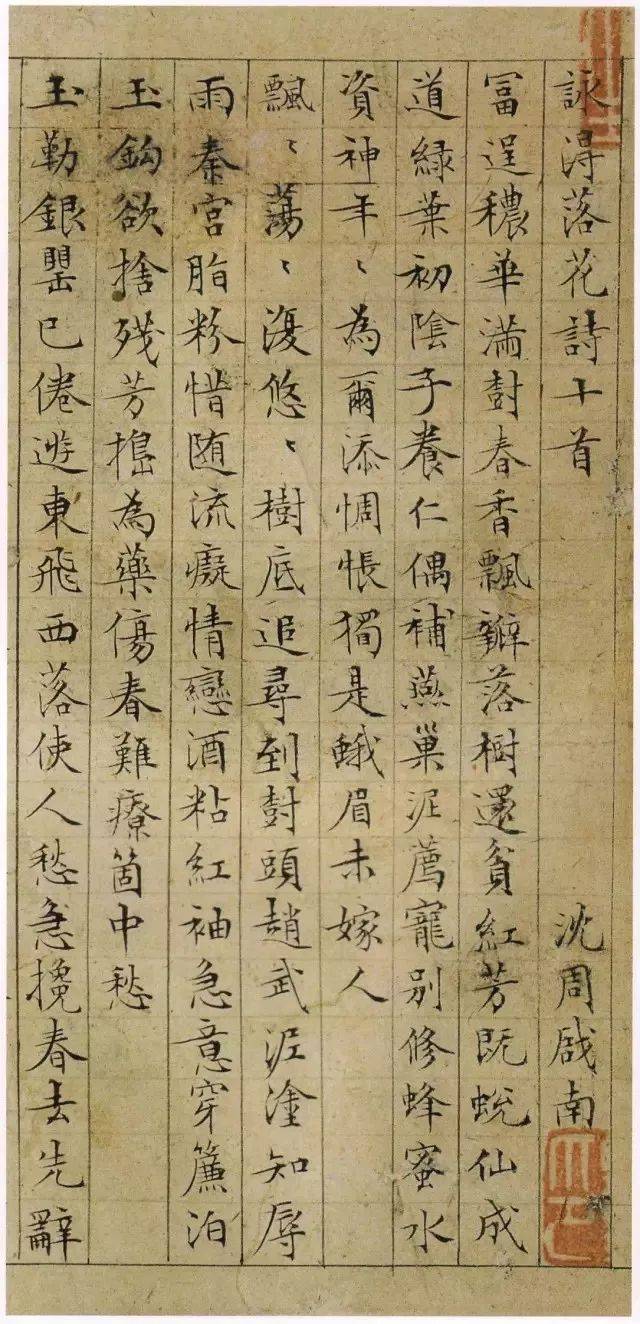 詠得落花詩十首
沈周啟南
富逞穠華滿樹春香飄瓣落樹還貧紅芳既蛻仙成
道綠葉初陰子養仁偶補燕巢泥薦寵別修蜂蜜水
資神年〻為爾添惆悵獨是蛾眉未嫁人
飄〻蕩〻復悠〻樹底追尋到樹頭趙武泥塗知辱
雨秦宮脂粉惜随流癡情戀酒粘紅袖急意穿簾泊
玉鈎欲捨殘芳搗為藥傷春難療箇中愁
玉勒銀罌已倦遊東飛西落使人愁急攙春去先辭